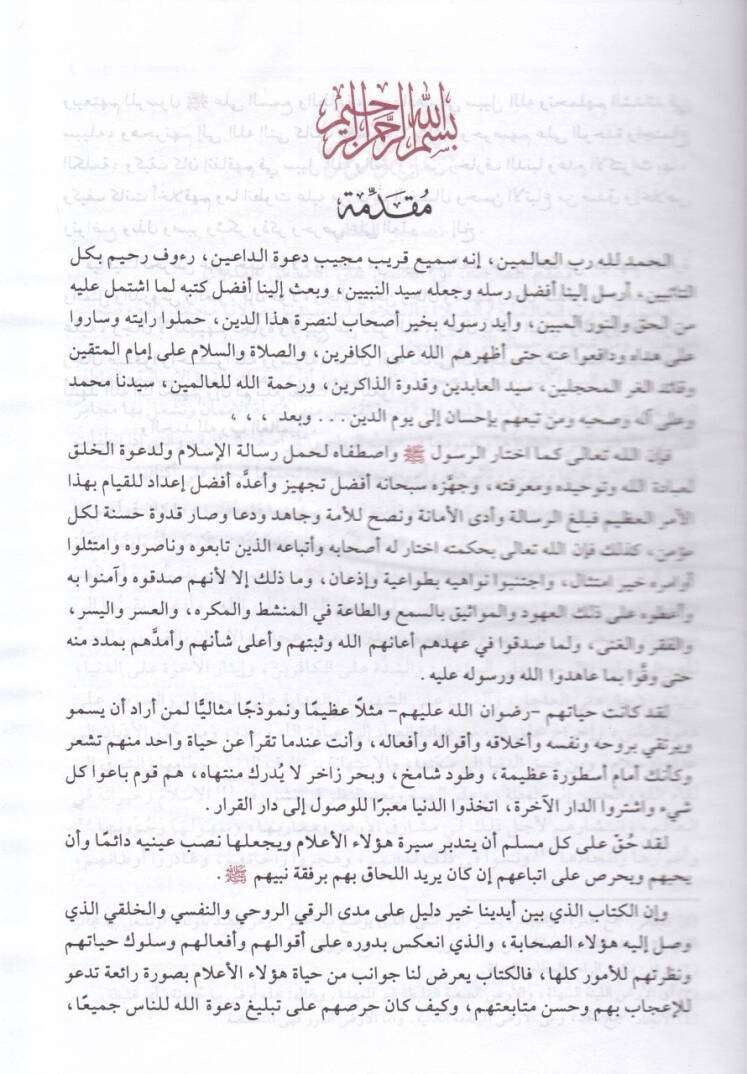 بسم الله الرحمن الرحيم
مُقدِّمة
الحمد لله رب العالمين، إنه سميع قريب مجيب دعوة الداعين، رءوف رحيم بكل
التائبين، أرسل إلينا أفضل رسله وجعله سيد النبيين، وبعث إلينا أفضل كتبه لما اشتمل عليه
من الحق والنور المبين، وأيد رسوله بخير أصحاب لنصرة هذا الدين، حملوا رايته وساروا
على هداه ودافعوا عنه حتى أظهرهم الله على الكافرين، والصلاة والسلام على إمام المتقين
وقائد الغر المحجلين، سيد العابدين وقدوة الذاكرين، ورحمة الله للعالمين، سيدنا محمد
وعلى آله وصحبه ومن تبعهم بإحسان إلى يوم الدين... وبعد ،،،
فإن الله تعالى كما اختار الرسول ﷺ واصطفاه لحمل رسالة الإسلام ولدعوة الخلق
لعبادة الله وتوحيده ومعرفته، وجهَّزه سبحانه أفضل تجهيز وأعدَّه أفضل إعداد للقيام بهذا
الأمر العظيم فبلغ الرسالة وأدى الأمانة ونصح للأمة وجاهد ودعا وصار قدوة حسنة لكل
مؤمن، كذلك فإن الله تعالى بحكمته اختار له أصحابه وأتباعه الذين تابعوه وناصروه وامتثلوا
أوامره خير امتثال، واجتنبوا نواهيه بطواعية وإذعان، وما ذلك إلا لأنهم صدقوه وآمنوا به
وأعطوه على ذلك العهود والمواثيق بالسمع والطاعة في المنشط والمكره، والعسر واليسر،
والفقر والغنى، ولما صدقوا في عهدهم أعانهم الله وثبتهم وأعلى شأنهم وأمدَّهم بمدد منه
حتى وفُّوا بما عاهدوا الله ورسوله عليه.
لقد كانت حياتهم -رضوان الله عليهم- مثلاً عظيمًا ونموذجًا مثاليًّا لمن أراد أن يسمو
ويرتقي بروحه ونفسه وأخلاقه وأقواله وأفعاله، وأنت عندما تقرأ عن حياة واحد منهم تشعر
وكأنك أمام أسطورة عظيمة، وطود شامخ، وبحر زاخر لا يُدرك منتهاه، هم قوم باعوا كل
شيء واشتروا الدار الآخرة، اتخذوا الدنيا معبرًا للوصول إلى دار القرار.
لقد حُقّ على كل مسلم أن يتدبر سيرة هؤلاء الأعلام ويجعلها نصب عينيه دائمًا وأن
يحبهم ويحرص على اتباعهم إن كان يريد اللحاق بهم برفقة نبيهم ﷺ.
وإن الكتاب الذي بين أيدينا خير دليل على مدى الرقي الروحي والنفسي والخلقي الذي
وصل إليه هؤلاء الصحابة، والذي انعكس بدوره على أقوالهم وأفعالهم وسلوك حياتهم
ونظرتهم للأمور كلها، فالكتاب يعرض لنا جوانب من حياة هؤلاء الأعلام بصورة رائعة تدعو
للإعجاب بهم وحسن متابعتهم، وكيف كان حرصهم على تبليغ دعوة الله للناس جميعًا،